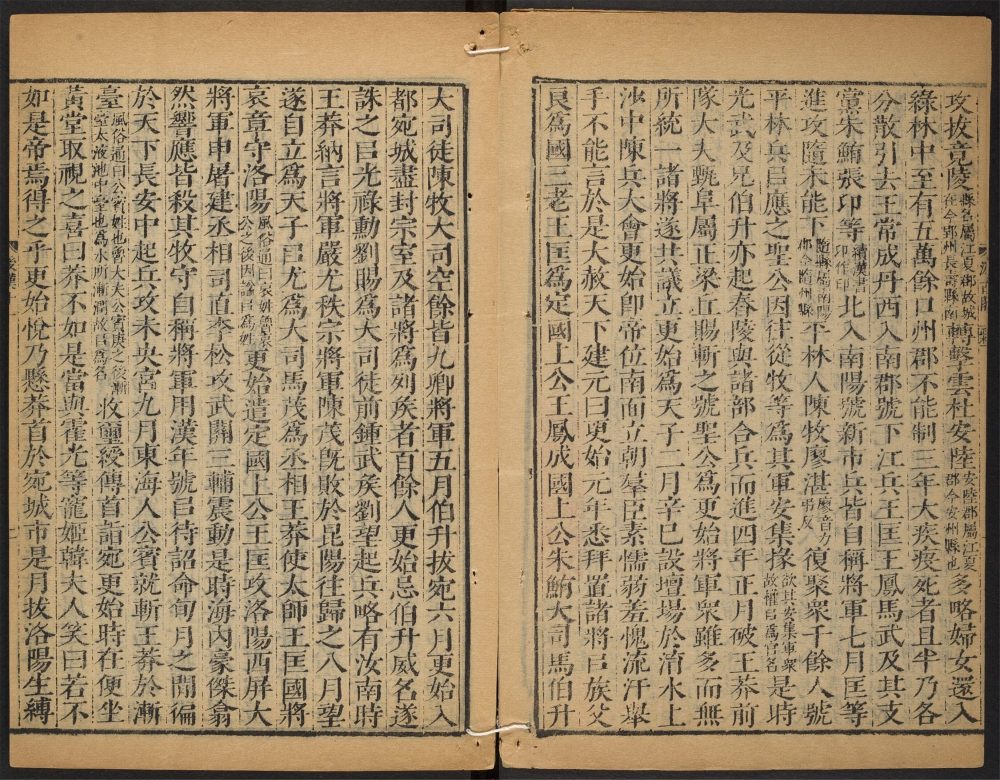 攻拔竟陵縣名屬江夏郡故城在今郢州長壽縣南轉擊雲杜安陸安陸郡屬江夏郡今安州縣也多略婦女還入
綠林中至有五萬餘口州郡不能制三年大疾疫死者且半乃各
分散引去王常成丹西入南郡號下江兵王匡王鳳馬武及其支
黨朱鮪張卬等續漢書卬作印北入南陽號新市兵皆自稱將軍七月匡等
進攻隨未能下隨縣屬南陽郡今隨州縣平林人陳牧廖湛廖音力弔反復聚衆千餘人號
平林兵㠯應之聖公因往從牧等爲其軍安集掾欲其安集軍衆故權㠯爲官名是時
光武及兄伯升亦起舂陵與諸部合兵而進四年正月破王莽前
隊大夫甄阜屬正梁丘賜斬之號聖公爲更始將軍衆雖多而無
所統一諸將遂共議立更始爲天子二月辛巳設壇場於淯水上
沙中陳兵大會更始卽帝位南面立朝羣臣素懦弱羞愧流汗舉
手不能言於是大赦天下建元曰更始元年悉拜置諸將㠯族父
良爲國三老王匡爲定國上公王鳳成國上公朱鮪大司馬伯升
大司徒陳牧大司空餘皆九卿將軍五月伯升拔宛六月更始入
都宛城盡封宗室及諸將爲列侯者百餘人更始忌伯升威名遂
誅之㠯光祿勳劉賜爲大司徒前鍾武侯劉望起兵略有汝南時
王莽納言將軍嚴尤秩宗將軍陳茂旣敗於昆陽往歸之八月望
遂自立爲天子㠯尤爲大司馬茂爲丞相王莽使太師王匡國將
哀章守洛陽風俗通曰哀姓魯哀公之後因諡㠯爲姓更始遣定國上公王匡攻洛陽西屏大
將軍申屠建丞相司直李松攻武關三輔震動是時海內豪傑翕
然響應皆殺其牧守自稱將軍用漢年號㠯待詔命旬月之閒徧
於天下長安中起兵攻未央宮九月東海人公賓就斬王莽於漸
臺風俗通曰公賓姓也魯大夫公賓庚之後漸臺太液池中臺也爲水所漸潤故㠯爲名收璽綬傳首詣宛更始時在便坐
黃堂取視之喜曰莽不如是當與霍光等寵姬韓夫人笑曰若不
如是帝焉得之乎更始悅乃懸莽首於宛城市是月拔洛陽生縛